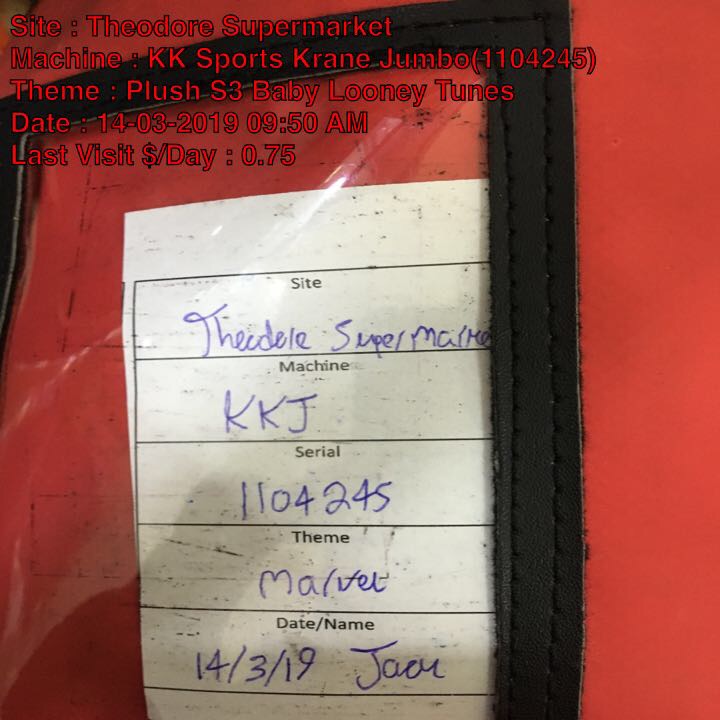 Site : Theodore Supermarket
Machine : KK Sports Krane Jumbo(1104245)
Theme : Plush S3 Baby Looney Tunes
Date : 14-03-2019 09:50 AM
Last Visit $/Day : 0.75
Site
Theodore Supermarke
Machine
KKJ
Serial
1104245
Theme
Marvel
Date/Name
14/3/19